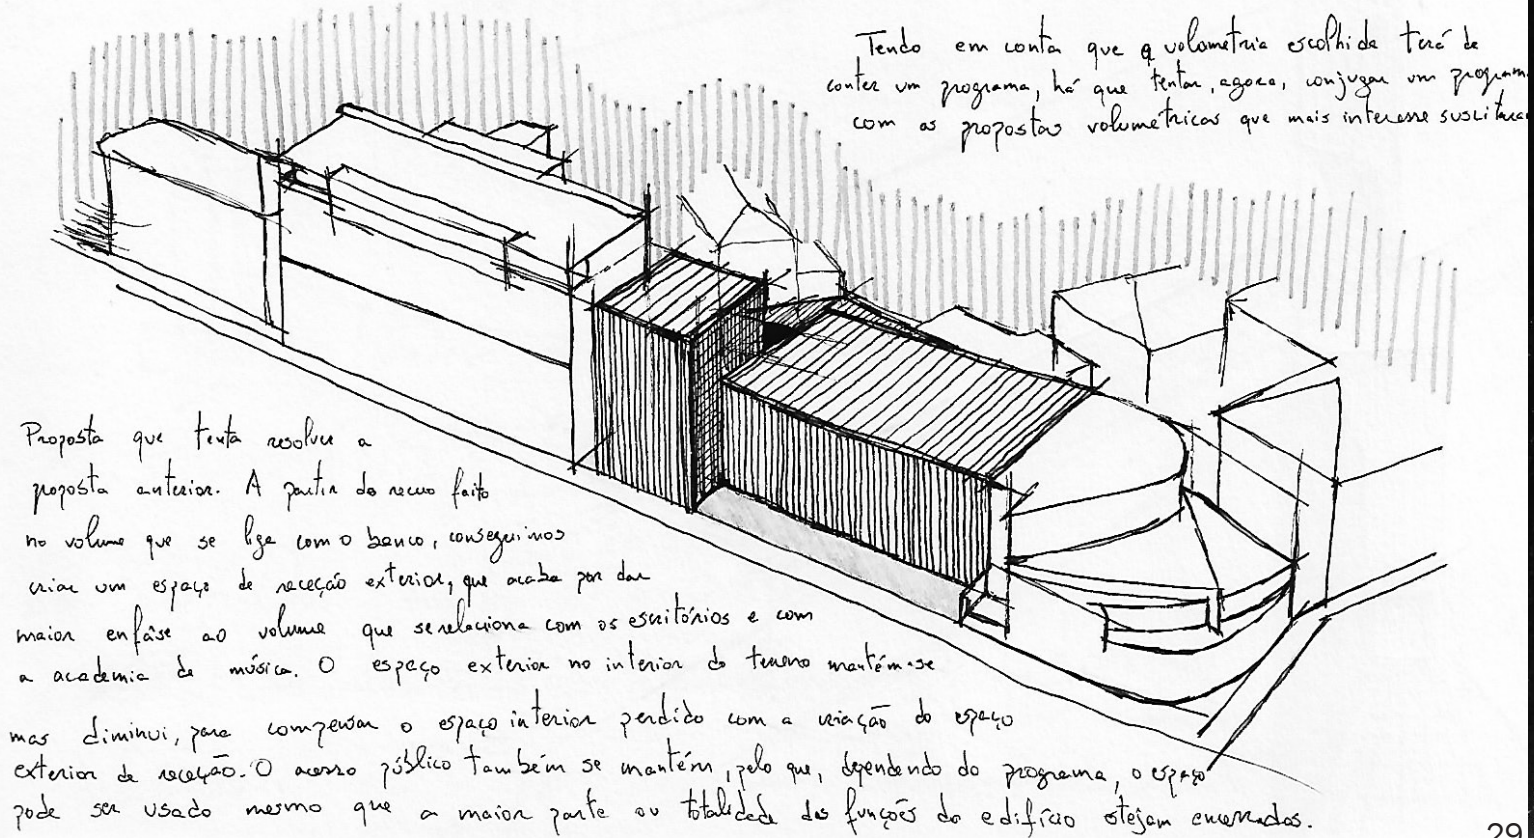 Tendo em conta que a volumetria escolhida terá de
conter um programa, há que tentar, agora, conjugar um program
com as propostas volumétricas que mais interesse suscitaram
Proposta que tenta resolver a
proposta anterior. A partir do recuo feito
no volume que se liga com o banco, conseguimos
criar um espaço de receção exterior, que acaba por dar
maior enfâse ao volume que se relaciona com os escritórios e com
a academia de música. O espaço exterior no interior do terreno mantém-se
mas diminui, para compensar o espaço interior perdido com a criação do espaço
exterior de receção. O acesso público também se mantém, pelo que, dependendo do programa, o espaço
pode ser usado mesmo que a maior parte ou totalidade das funções do edifício estejam encerradas.
29